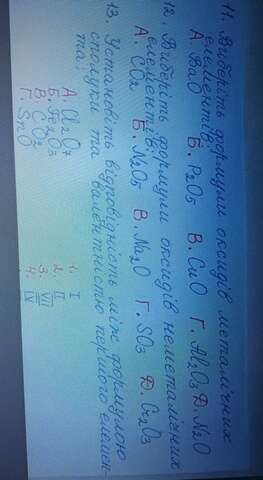 11. Виберіть формули оксидів металічних
елементів:
А. BaO Б. P2O5 В. CuO Г. Al2O3 Д. N2O
12. Виберіть формули оксидів неметалічних
елементів:
А. CO2 Б. N2O5 В. Na2O Г. SO3 Д. Cr2O3
13. Установіть відповідність між формулою
сполуки та валентністю першого елемен-
та:
А. Cl2O7 1. I
Б. Fe2O3 2. II
В. CO2 3. VII
Г. SnO 4. IV